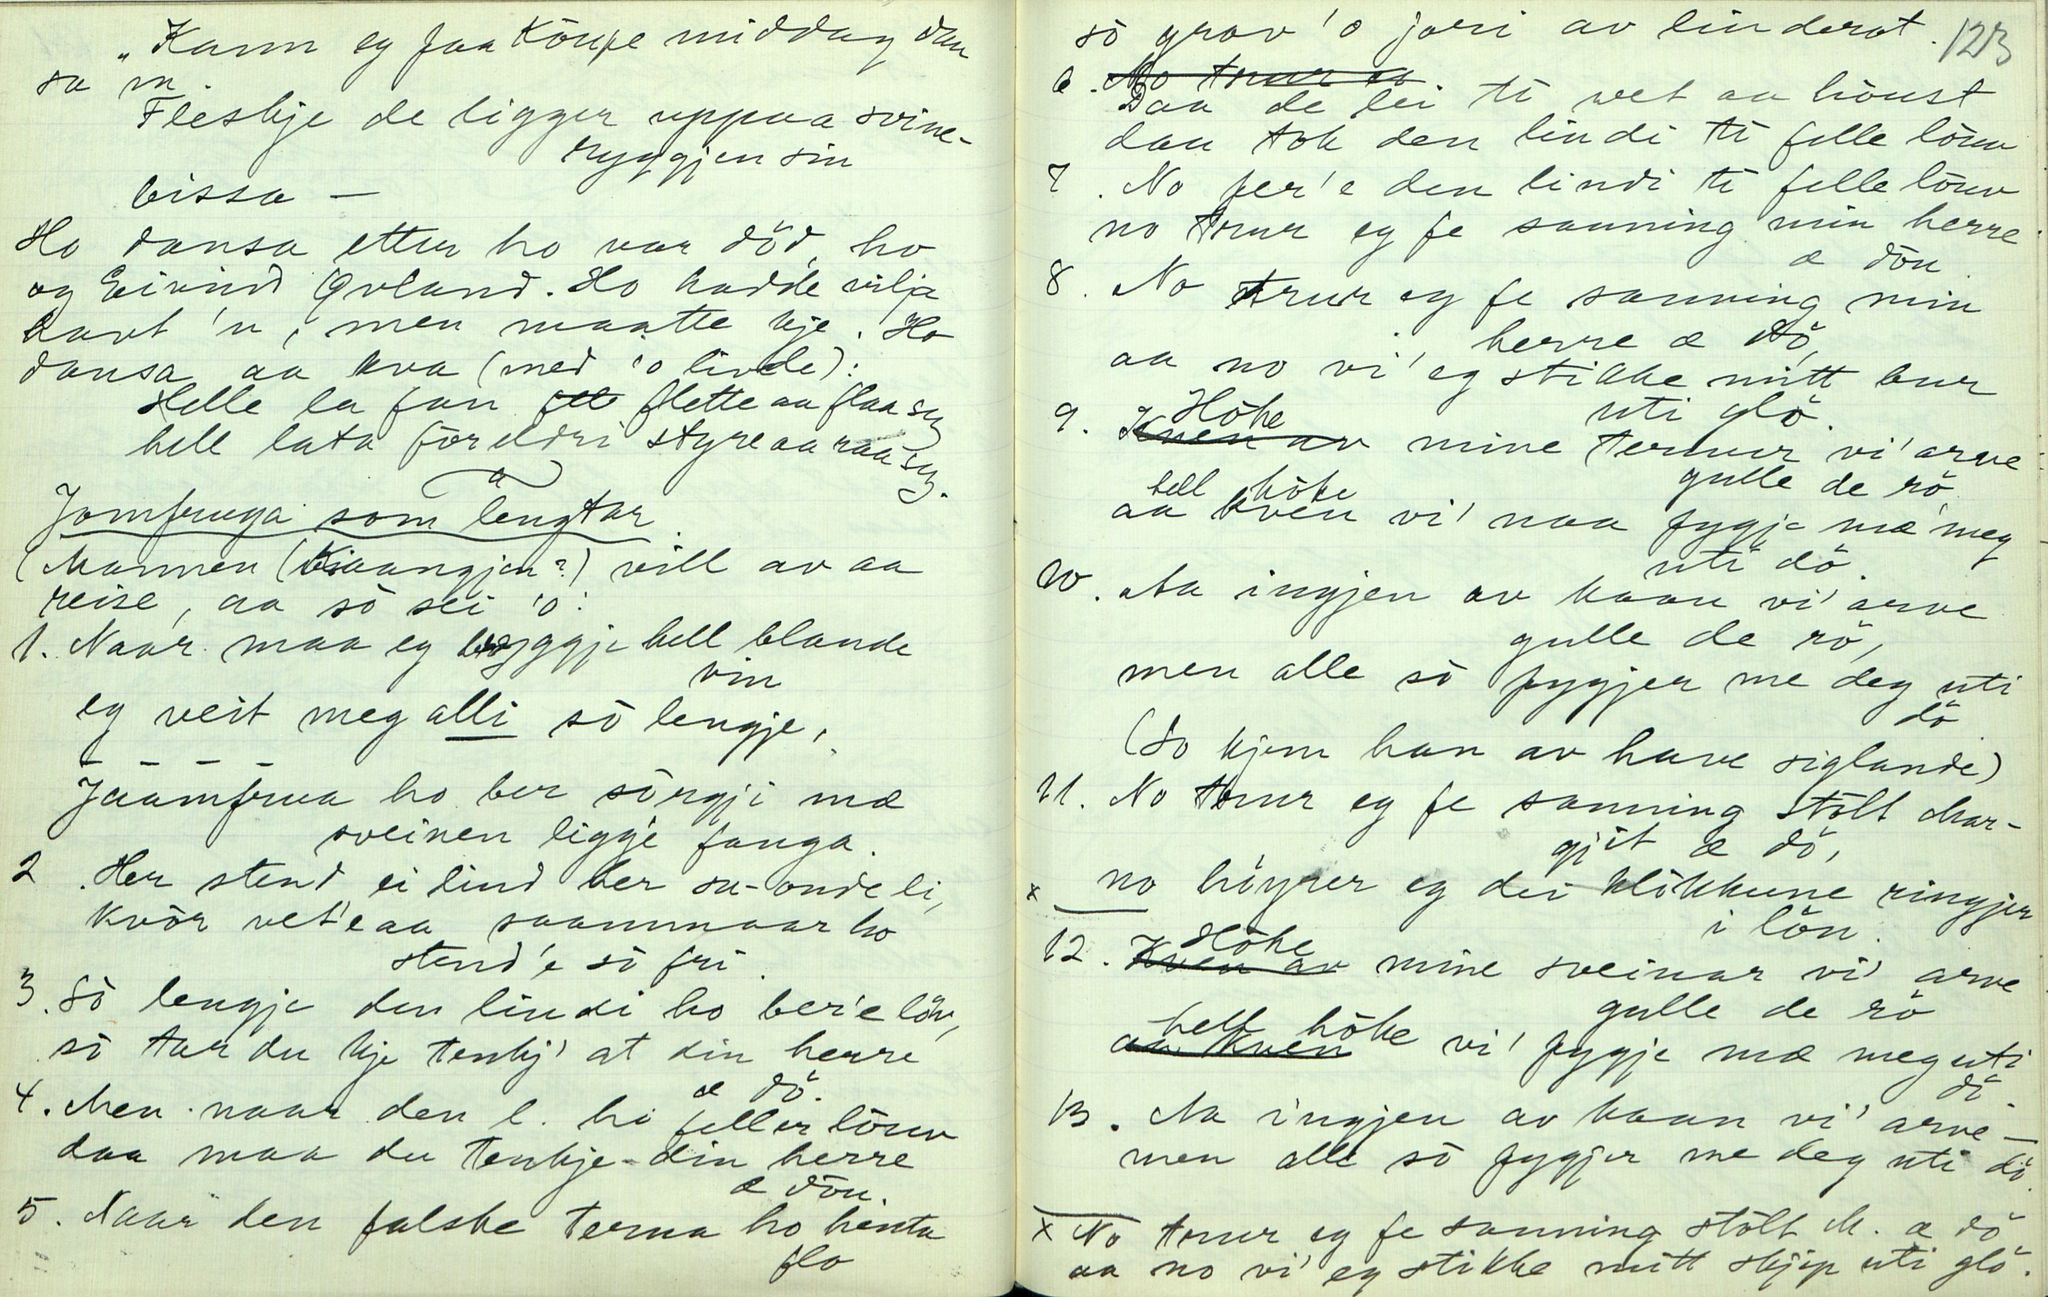 „Kann eg faa köupe middag dan
sa m.
Fleskje de ligger uppaa svine-
ryggjen sin
bissa —
Ho dansa etter ho var död, ho
og Eivind Qvland. Ho hadde vilja
havt 'n, men maatte kje. Ho
dansa aa kva (med 'o livde):
Helle la fan flette aa flaa seg
hell lata föreldri styre aa raa seg.
Jomfruga som lengtar
(Mannen (kjaangjen?) vill av aa
reise, aa sö sei 'o:
1. Naar maa eg bryggje hell blande
vin
eg veit meg alli sö lengje,
Jaamfrua ho ber sörgji mæ
sveinen ligg'e fanga.
2. Her stend ei lind her su-onde li,
kvör vet'e aa saammaar ho
stend'e sö fri.
3. Sö lengje den lindi ho ber'e löv,
sö tar du kje tenkj' at din herre
æ dö.
4. Men naar den l. ho feller löuv
daa maa du tenkje din herre
æ döu.
5. Naar den falske terna ho henta
flo
123
sö grov 'o jori av linderot.
6. No trur eg
Daa de lei ti vet aa höust
daa tok den lindi ti felle löuv
7. No fer'e den lindi ti felle löuv
no trur eg fe sanning min herre
æ döu.
8. No trur eg fe sanning min
herre æ dö,
aa no vi' eg stikke mitt bur
uti glö.
9. Kven av Höke mine ternur vi' arve
gulle de rö
hell höke
aa kven vi' naa fygje mæ meg
uti dö.
10. Aa ingjen av kaan vi' arve
gulle de rö,
men alle sö fygjer me deg uti
dö
(So kjem han av have siglande)
11. No trur eg fe sanning stölt Mar-
gjit æ dö,
x no höyrer eg dei klökkune ringjer
i lön.
12. Kven av Höke mine sveinar vi' arve
gulle de rö
hell höke
aa kven vi' fygje mæ meg uti
dö.
13. Aa ingjen av kaan vi' arve —
men alle sö fygjer me deg uti dö.
x No trur eg fe sanning stölt M. æ dö
aa no vi' eg stikke mitt skjip uti glö.